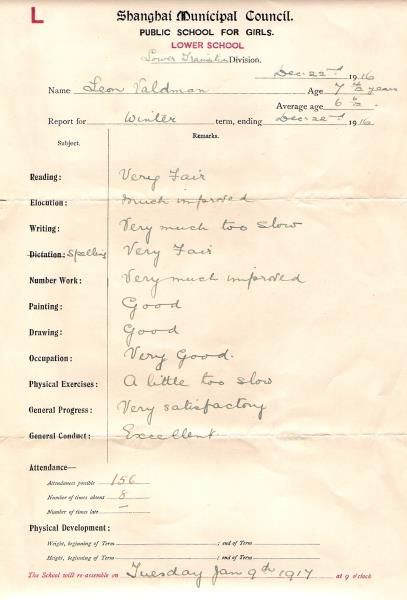 L
Shanghai Municipal Council.
PUBLIC SCHOOL FOR GIRLS.
LOWER SCHOOL
Lower Transition Division.
Dec. 22nd 1916
Name Leon Valdman Age 7 4/12 years
Average age 6 6/12.
Report for Winter term, ending Dec. 22nd 1916
Subject. Remarks.
Reading: Very Fair
Elocution: Much improved
Writing: Very much too slow
Dictation: Spelling Very Fair
Number Work: Very much improved
Painting: Good
Drawing: Good
Occupation: Very Good.
Physical Exercises: A little too slow
General Progress: Very satisfactory
General Conduct: Excellent
Attendance—
Attendances possible 156
Number of times absent 8
Number of times late —
Physical Development:
Weight, beginning of Term ; end of Term
Height, beginning of Term ; end of Term
The School will re-assemble on Tuesday Jan 9th 1917 at 9 o'clock